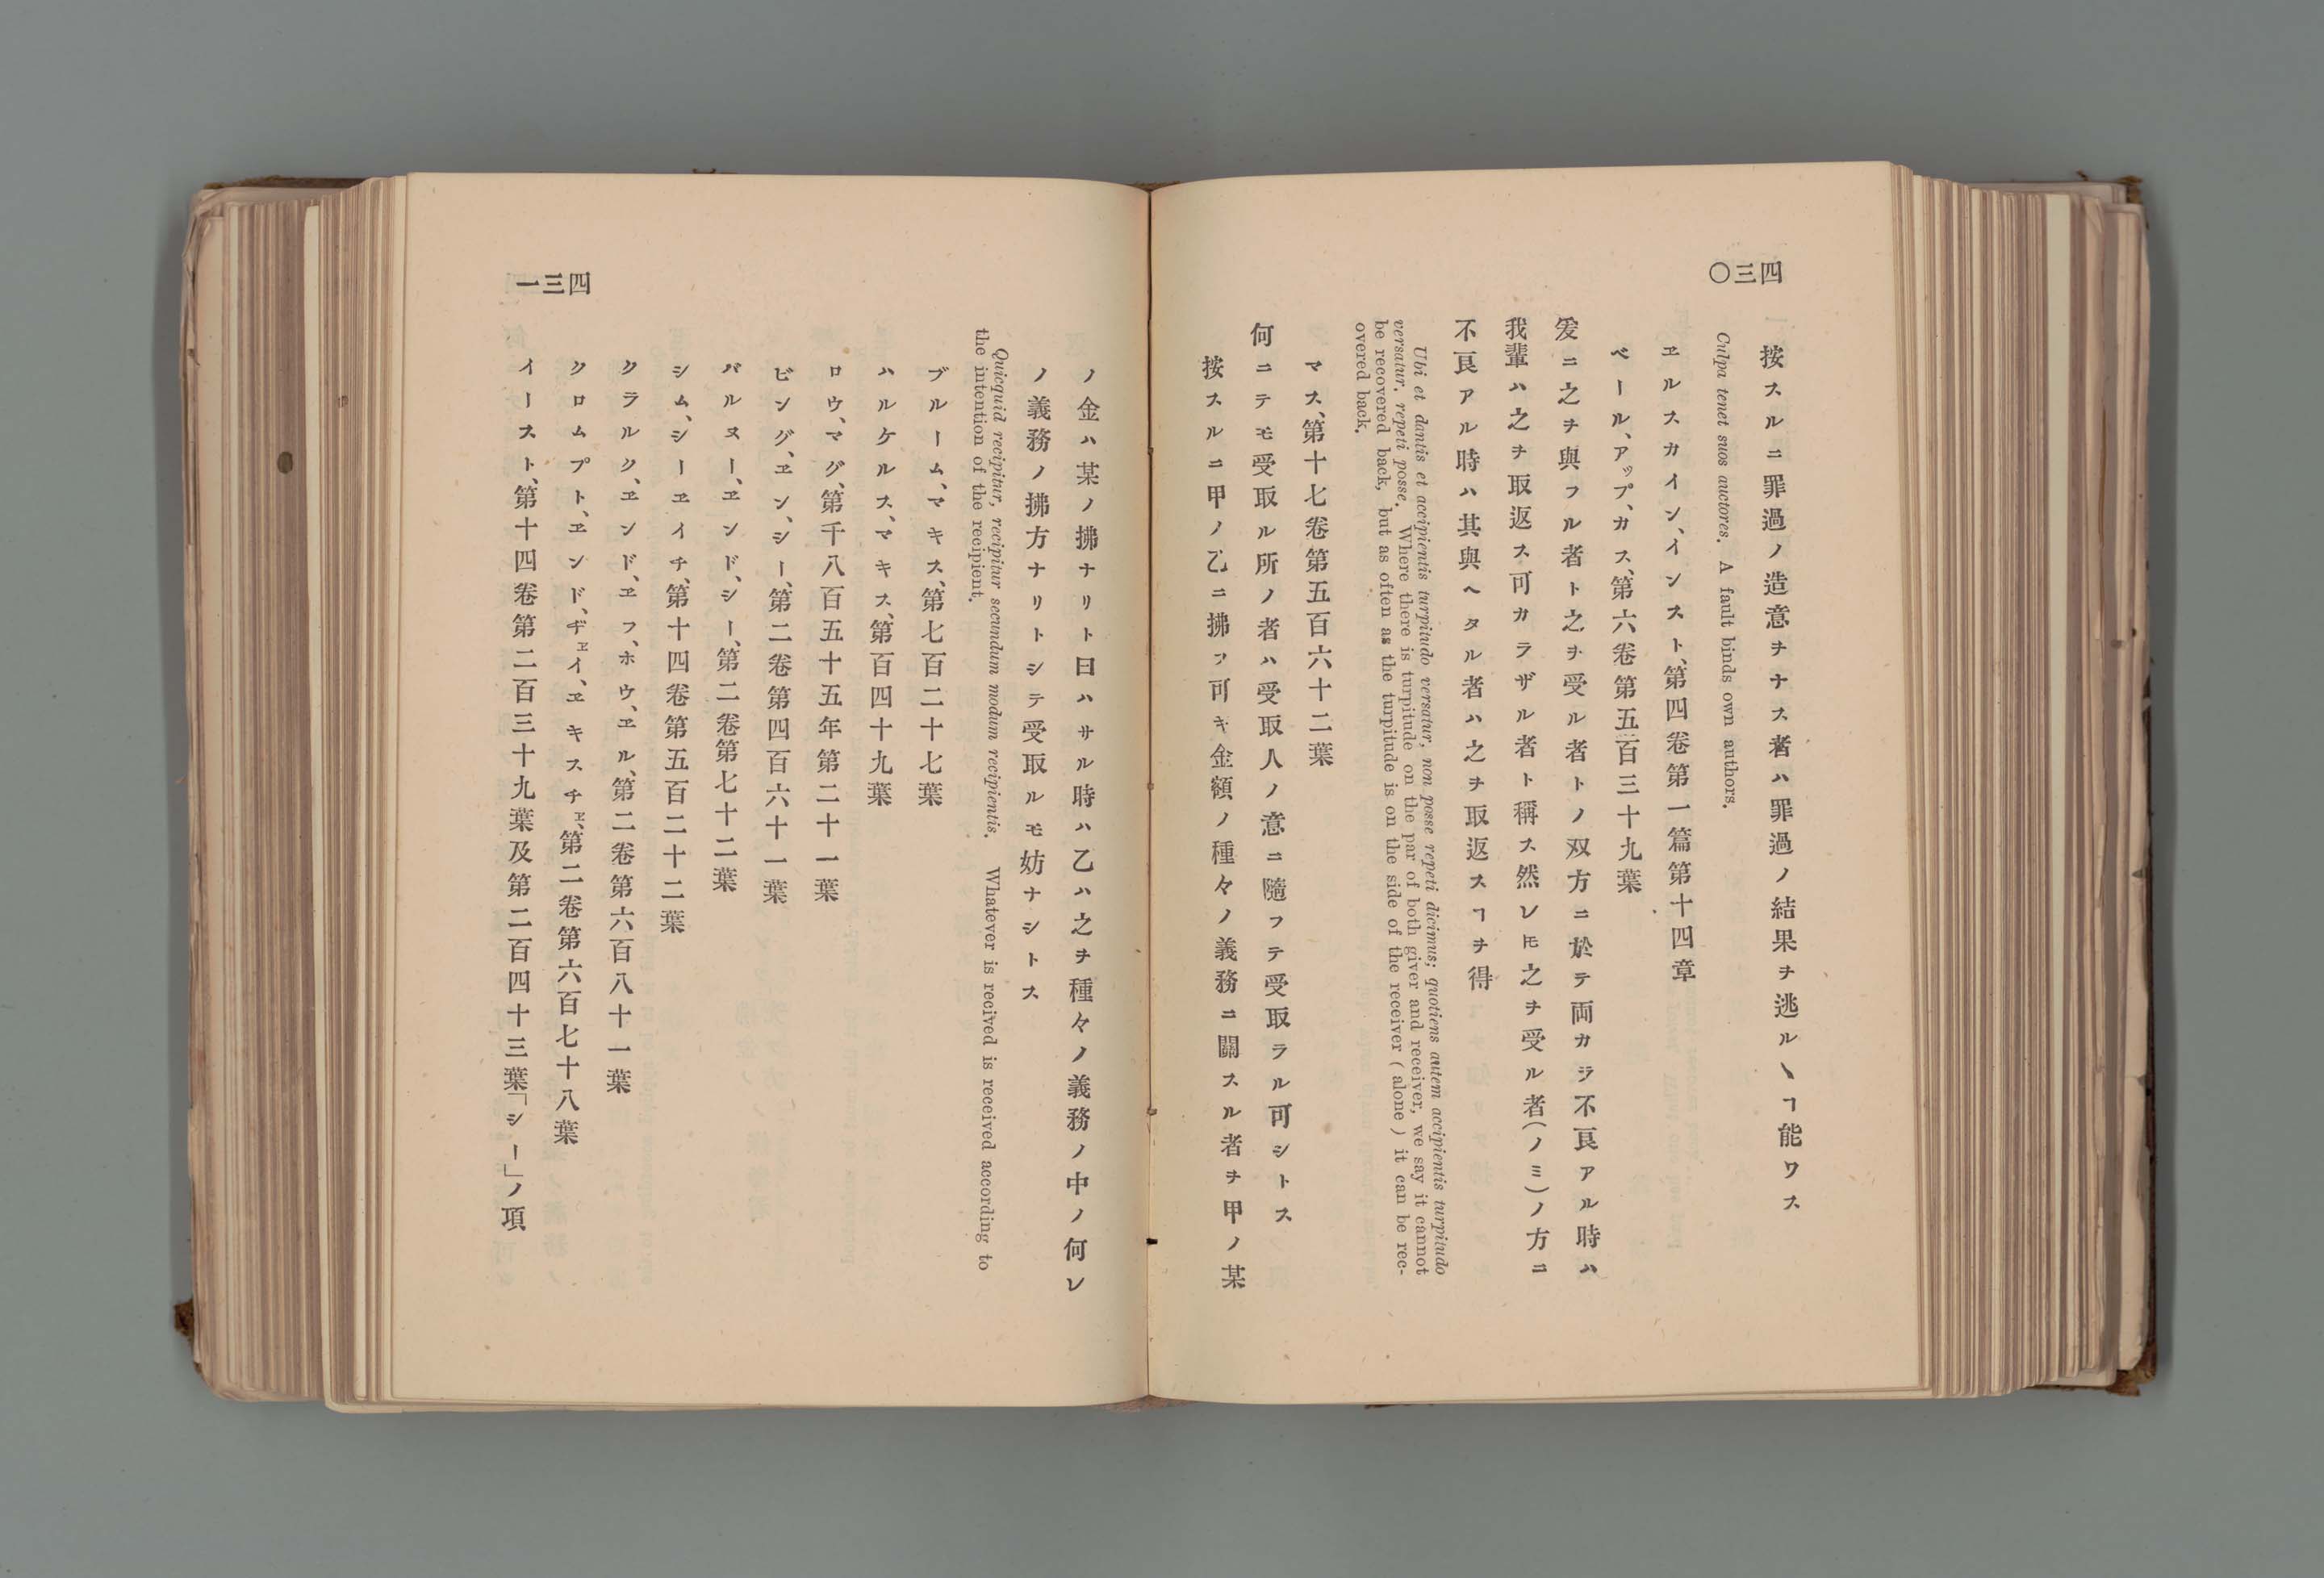 四三〇
按スルニ罪過ノ造意ヲナス者ハ罪過ノ結果ヲ逃ルヽヿ能ワス
Culpa tenet suos auctores. A fault binds own authors.
ヱルスカイン、インスト、第四卷第一篇第十四章
ベール、アップ、カス、第六卷第五百三十九葉
爰ニ之ヲ與フル者ト之ヲ受ル者トノ双方ニ於テ両カラ不良アル時ハ
我輩ハ之ヲ取返ス可カラザル者ト稱ス然レ𪜈之ヲ受ル者(ノミ)ノ方ニ
不良アル時ハ其與ヘタル者ハ之ヲ取返スヿヲ得
Ubi et dantis et accipientis turpitudo versatur, non posse repeti dicimus; quotiens autem accipientis turpitudo
versatur, repeti posse. Where there is turpitude on the par of both giver and receiver, we say it cannot
be recovered back, but as often as the turpitude is on the side of the receiver (alone) it can be rec-
overed back.
マス、第十七卷第五百六十二葉
何ニテモ受取ル所ノ者ハ受取人ノ意ニ隨フテ受取ラル可シトス
按スルニ甲ノ乙ニ拂フ可キ金額ノ種々ノ義務ニ關スル者ヲ甲ノ某
四三一
ノ金ハ某ノ拂ナリト曰ハサル時ハ乙ハ之ヲ種々ノ義務ノ中ノ何レ
ノ義務ノ拂方ナリトシテ受取ルモ妨ナシトス
Quicquid recipitur, recipitur secundum modum recipientis. Whatever is received is received according to
the intention of the recipient.
ブルーム、マキス、第七百二十七葉
ハルケルス、マキス、第百四十九葉
ロウ、マグ、第千八百五十五年第二十一葉
ビング、ヱン、シー、第二卷第四百六十一葉
バルヌー、ヱンド、シー、第二卷第七十二葉
シム、シーヱイチ、第十四卷第五百二十二葉
クラルク、ヱンド、ヱフ、ホウ、ヱル、第二卷第六百八十一葉
クロムプト、ヱンド、ヂヱイ、ヱキスチヱ、第二卷第六百七十八葉
イースト、第十四卷第二百三十九葉及第二百四十三葉「シー」ノ項